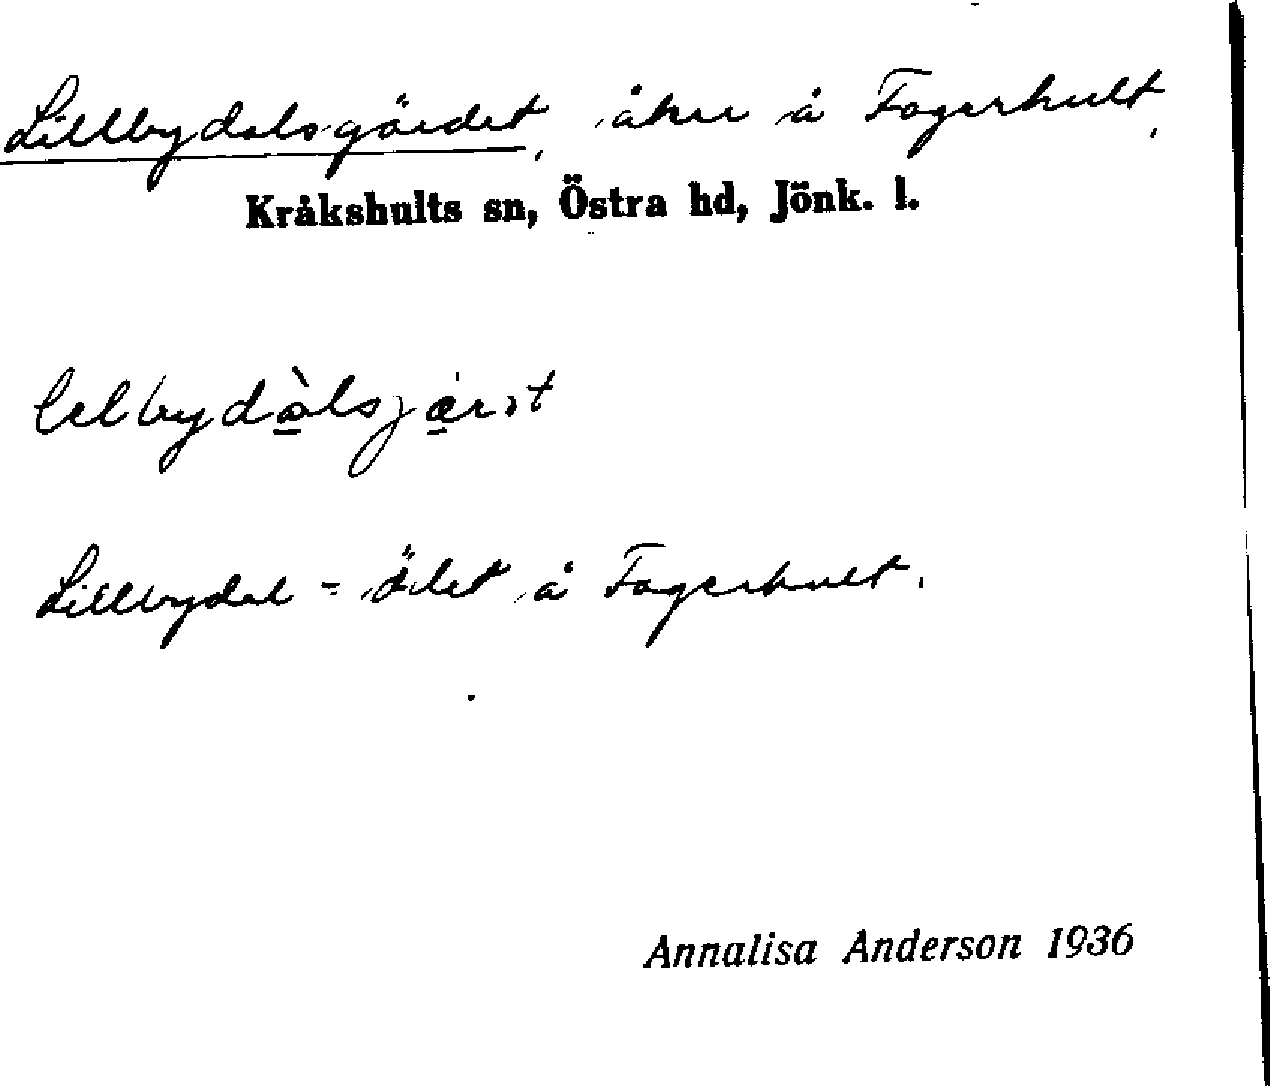 Lillbydalsgärdet, åker å Fagerhult,
Kråkshults sn, Östra hd, Jönk. l.
Lillbydal = å Fagerhult.
Annalisa Anderson 1936